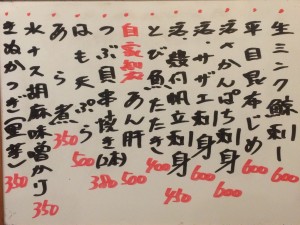 生ミンク鯨刺し
平目昆布じめ 600
活〆かんぱち刺身 600
活サザエ刺身 600
活殻付帆立刺身 450
とび魚たたき 400
自家製 あん肝 500
つぶ貝串焼き(2本) 380
はも天ぷら 500
あら煮 350
水ナス胡麻味噌かけ 350
きぬかつぎ(里芋) 350